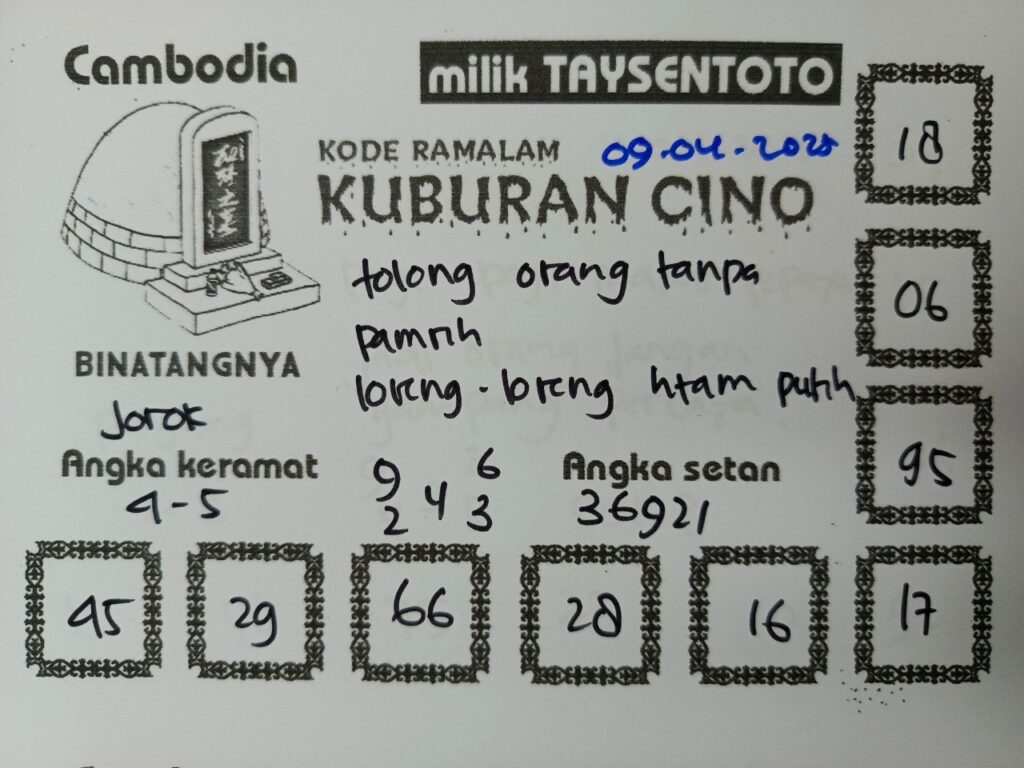 Cambodia
milik TAYSENTOTO
KODE RAMALAM 09-04-2025
KUBURAN CINO
tolong orang tanpa
pamrih
loreng-loreng htam putih
BINATANGNYA
Jorok
Angka keramat
4-5
9 6
4
2 3
Angka setan
36921
18
06
95
45 29 66 28 16 17